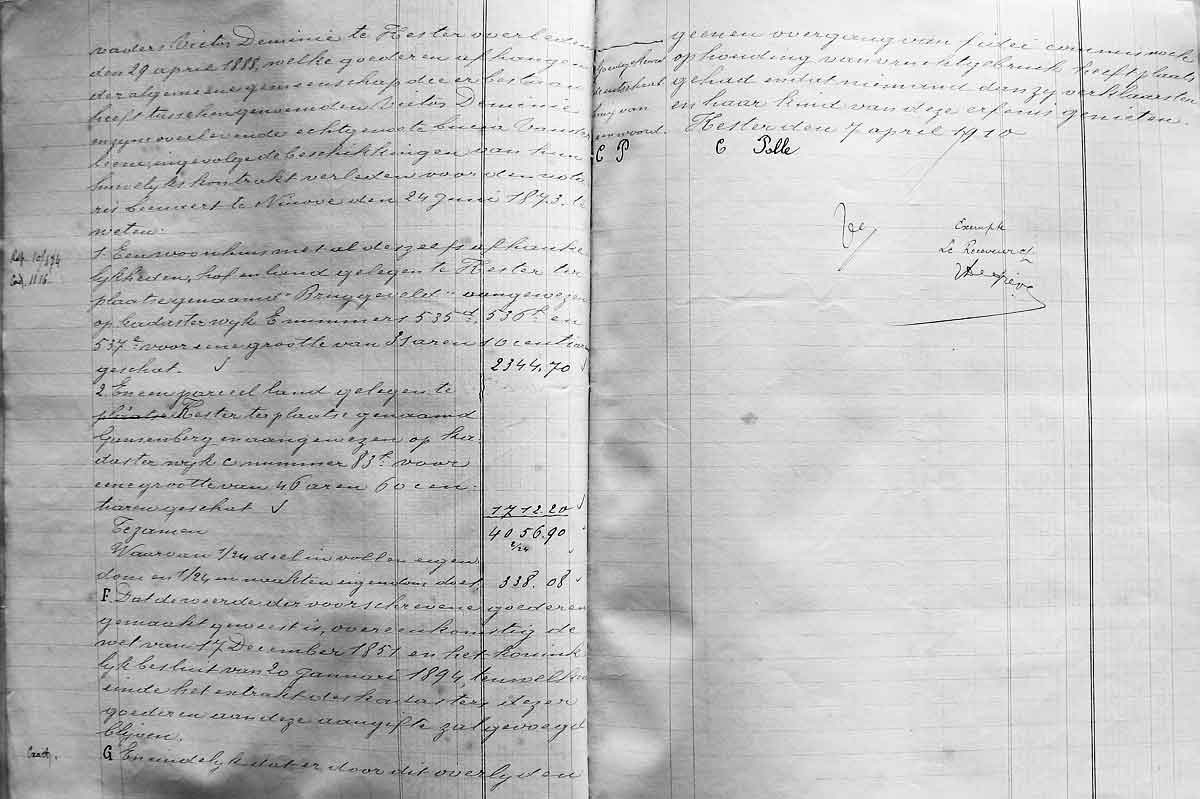 vaders Victor Deminie te Hester overleden
den 29 april 1888, welke goederen afhangen
der algemeene gemeenschap die er bestaan
heeft tusschen genoemden Victor Deminie
en zyne overlevende echtgenoote
ingevolge de beschikkingen van hun
huwelyks kontrakt verleden voor den nota
ris te Ninove den 24 Juni 1873. te
weten:
1. Een woonhuis met al deszelfs afhanke
lykheden, hof en land gelegen te Hester ter
plaatse genaamd "Bruggeveld" aangewezen
op kadaster wyk E nummers 535 536 en
537 voor eene grootte van 31 aren 10 centiaren
geschat. 2344.70
2. Eenen parceel land gelegen te
plaatse Hester ter plaatse genaamd
en aangewezen op ka-
daster wyk C nummer 83 voor
eene grootte van 46 aren 60 cen-
tiaren geschat 1712.20
Tezamen 4056.90
2/24
Waarvan 1/24 deel in vollen eigen
dom en 1/24 in naakten eigendom doet, 338.08
F. Dat de weerde der voorschrevene goederen
gemaakt geweest is, overeenkomstig de
wet van 17 December 1851 en het konink
lyk besluit van 20 Januari 1894, ten welken
einde het extrakt des kadasters dezer
goederen aan deze aangifte zal gevoegd
blyven.
G Eindelyk dat er door dit overlyden
geenen overgang van fidei commis noch
ophouding van vruchtgebruik heeft plaats
gehad en dat niemand dan zy verklaarster
en haar kind van deze erfenis genieten.
Hester den 7 april 1910
C P
C Polle
Le Receveur